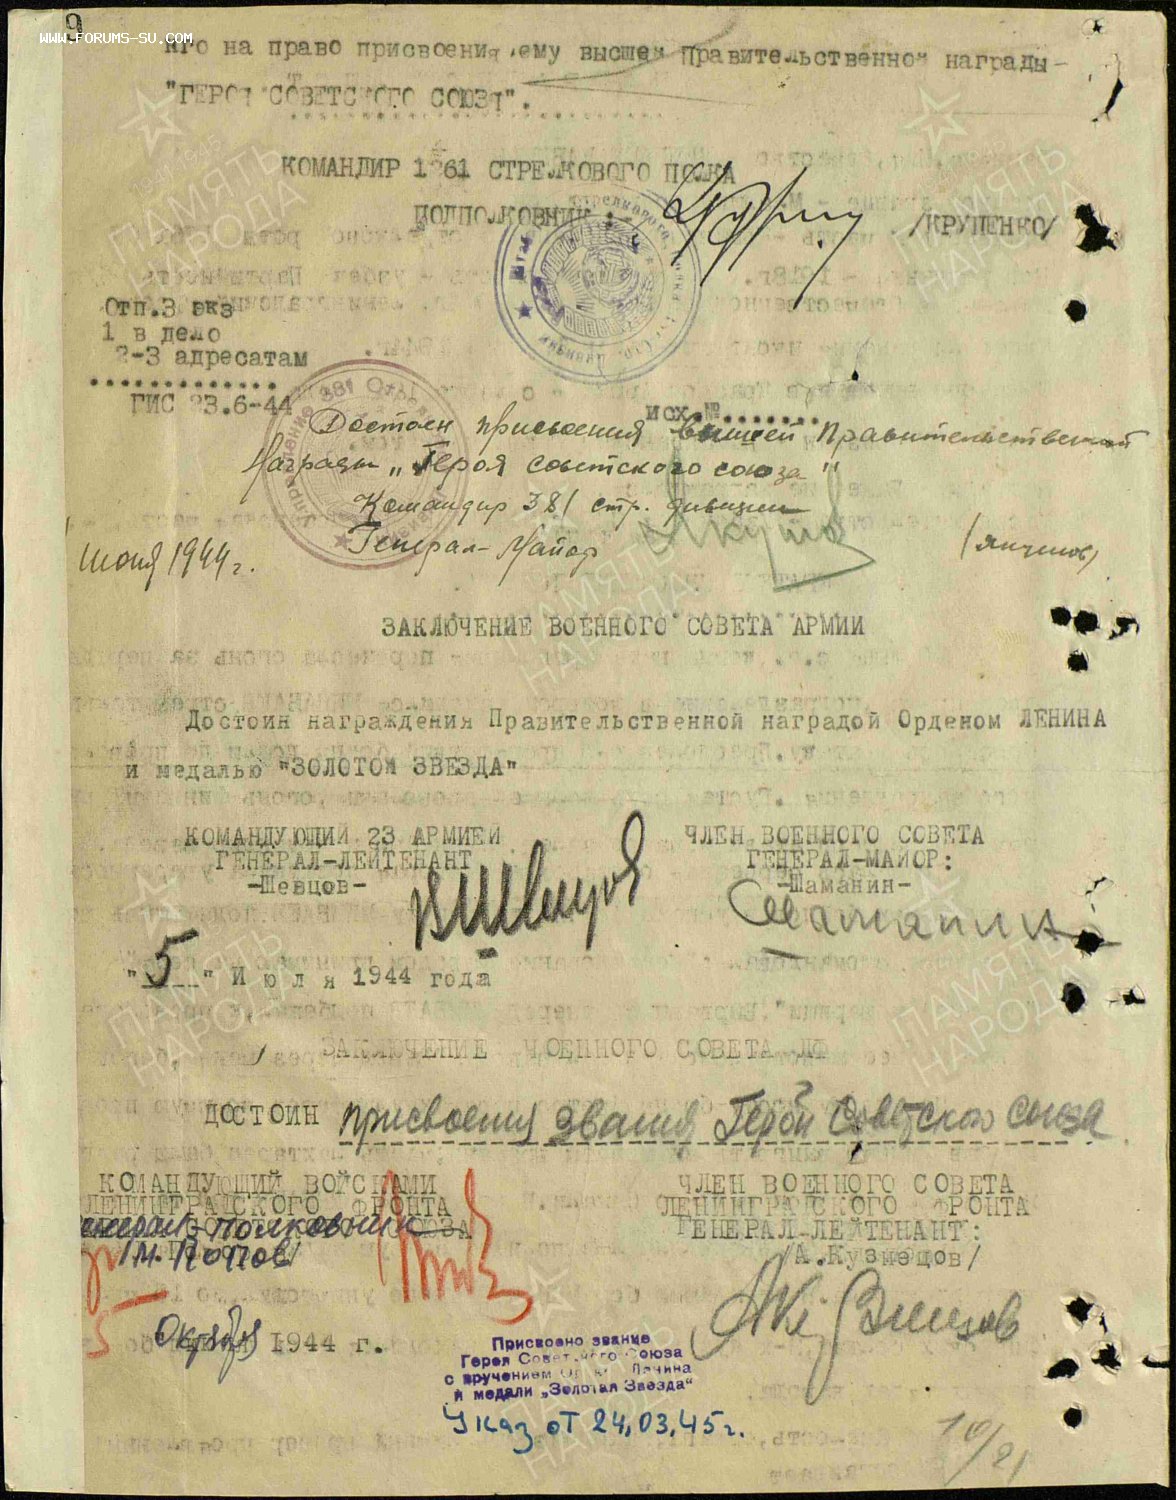 9
www.forums-su.com
его на право присвоения ему высшей Правительственной награды-
"ГЕРОЯ СОВЕТСКОГО СОЮЗА".
КОМАНДИР 1261 СТРЕЛКОВОГО ПОЛКА
ПОДПОЛКОВНИК :-
/КРУПЕНКО/
Отп.3 экз
1 в дело
2-3 адресатам
ГИС 23.6-44
исх.№.......
Достоен присвоения высшей Правительственной
Награды „Героя советского союза"
Командир 381 стр. дивизии
Генерал-Майор
Якушов
/якушов/
июня 1944 г.
ЗАКЛЮЧЕНИЕ ВОЕННОГО СОВЕТА АРМИИ
Достоин награждения Правительственной наградой Орденом ЛЕНИНА
и медалью "ЗОЛОТОЙ ЗВЕЗДА"
КОМАНДУЮЩИЙ 23 АРМИЕЙ
ГЕНЕРАЛ-ЛЕЙТЕНАНТ
-Шевцов-
ЧЛЕН ВОЕННОГО СОВЕТА
ГЕНЕРАЛ-МАЙОР:
-Шаманин-
Шаманин
"5" Июля 1944 года
ЗАКЛЮЧЕНИЕ ВОЕННОГО СОВЕТА ЛФ
ДОСТОИН присвоения звания Герой Советского союза
КОМАНДУЮЩИЙ ВОЙСКАМИ
ЛЕНИНГРАДСКОГО ФРОНТА
генерал-полковник
/М. Попов/
ЧЛЕН ВОЕННОГО СОВЕТА
ЛЕНИНГРАДСКОГО ФРОНТА
ГЕНЕРАЛ-ЛЕЙТЕНАНТ:
/А.Кузнецов/
5 Октября 1944 г.
Присвоено звание
Героя Советского Союза
с вручением Ордена Ленина
и медали „Золотая Звезда"
Указ от 24.03.45г.
10/21
ПАМЯТЬ НАРОДА